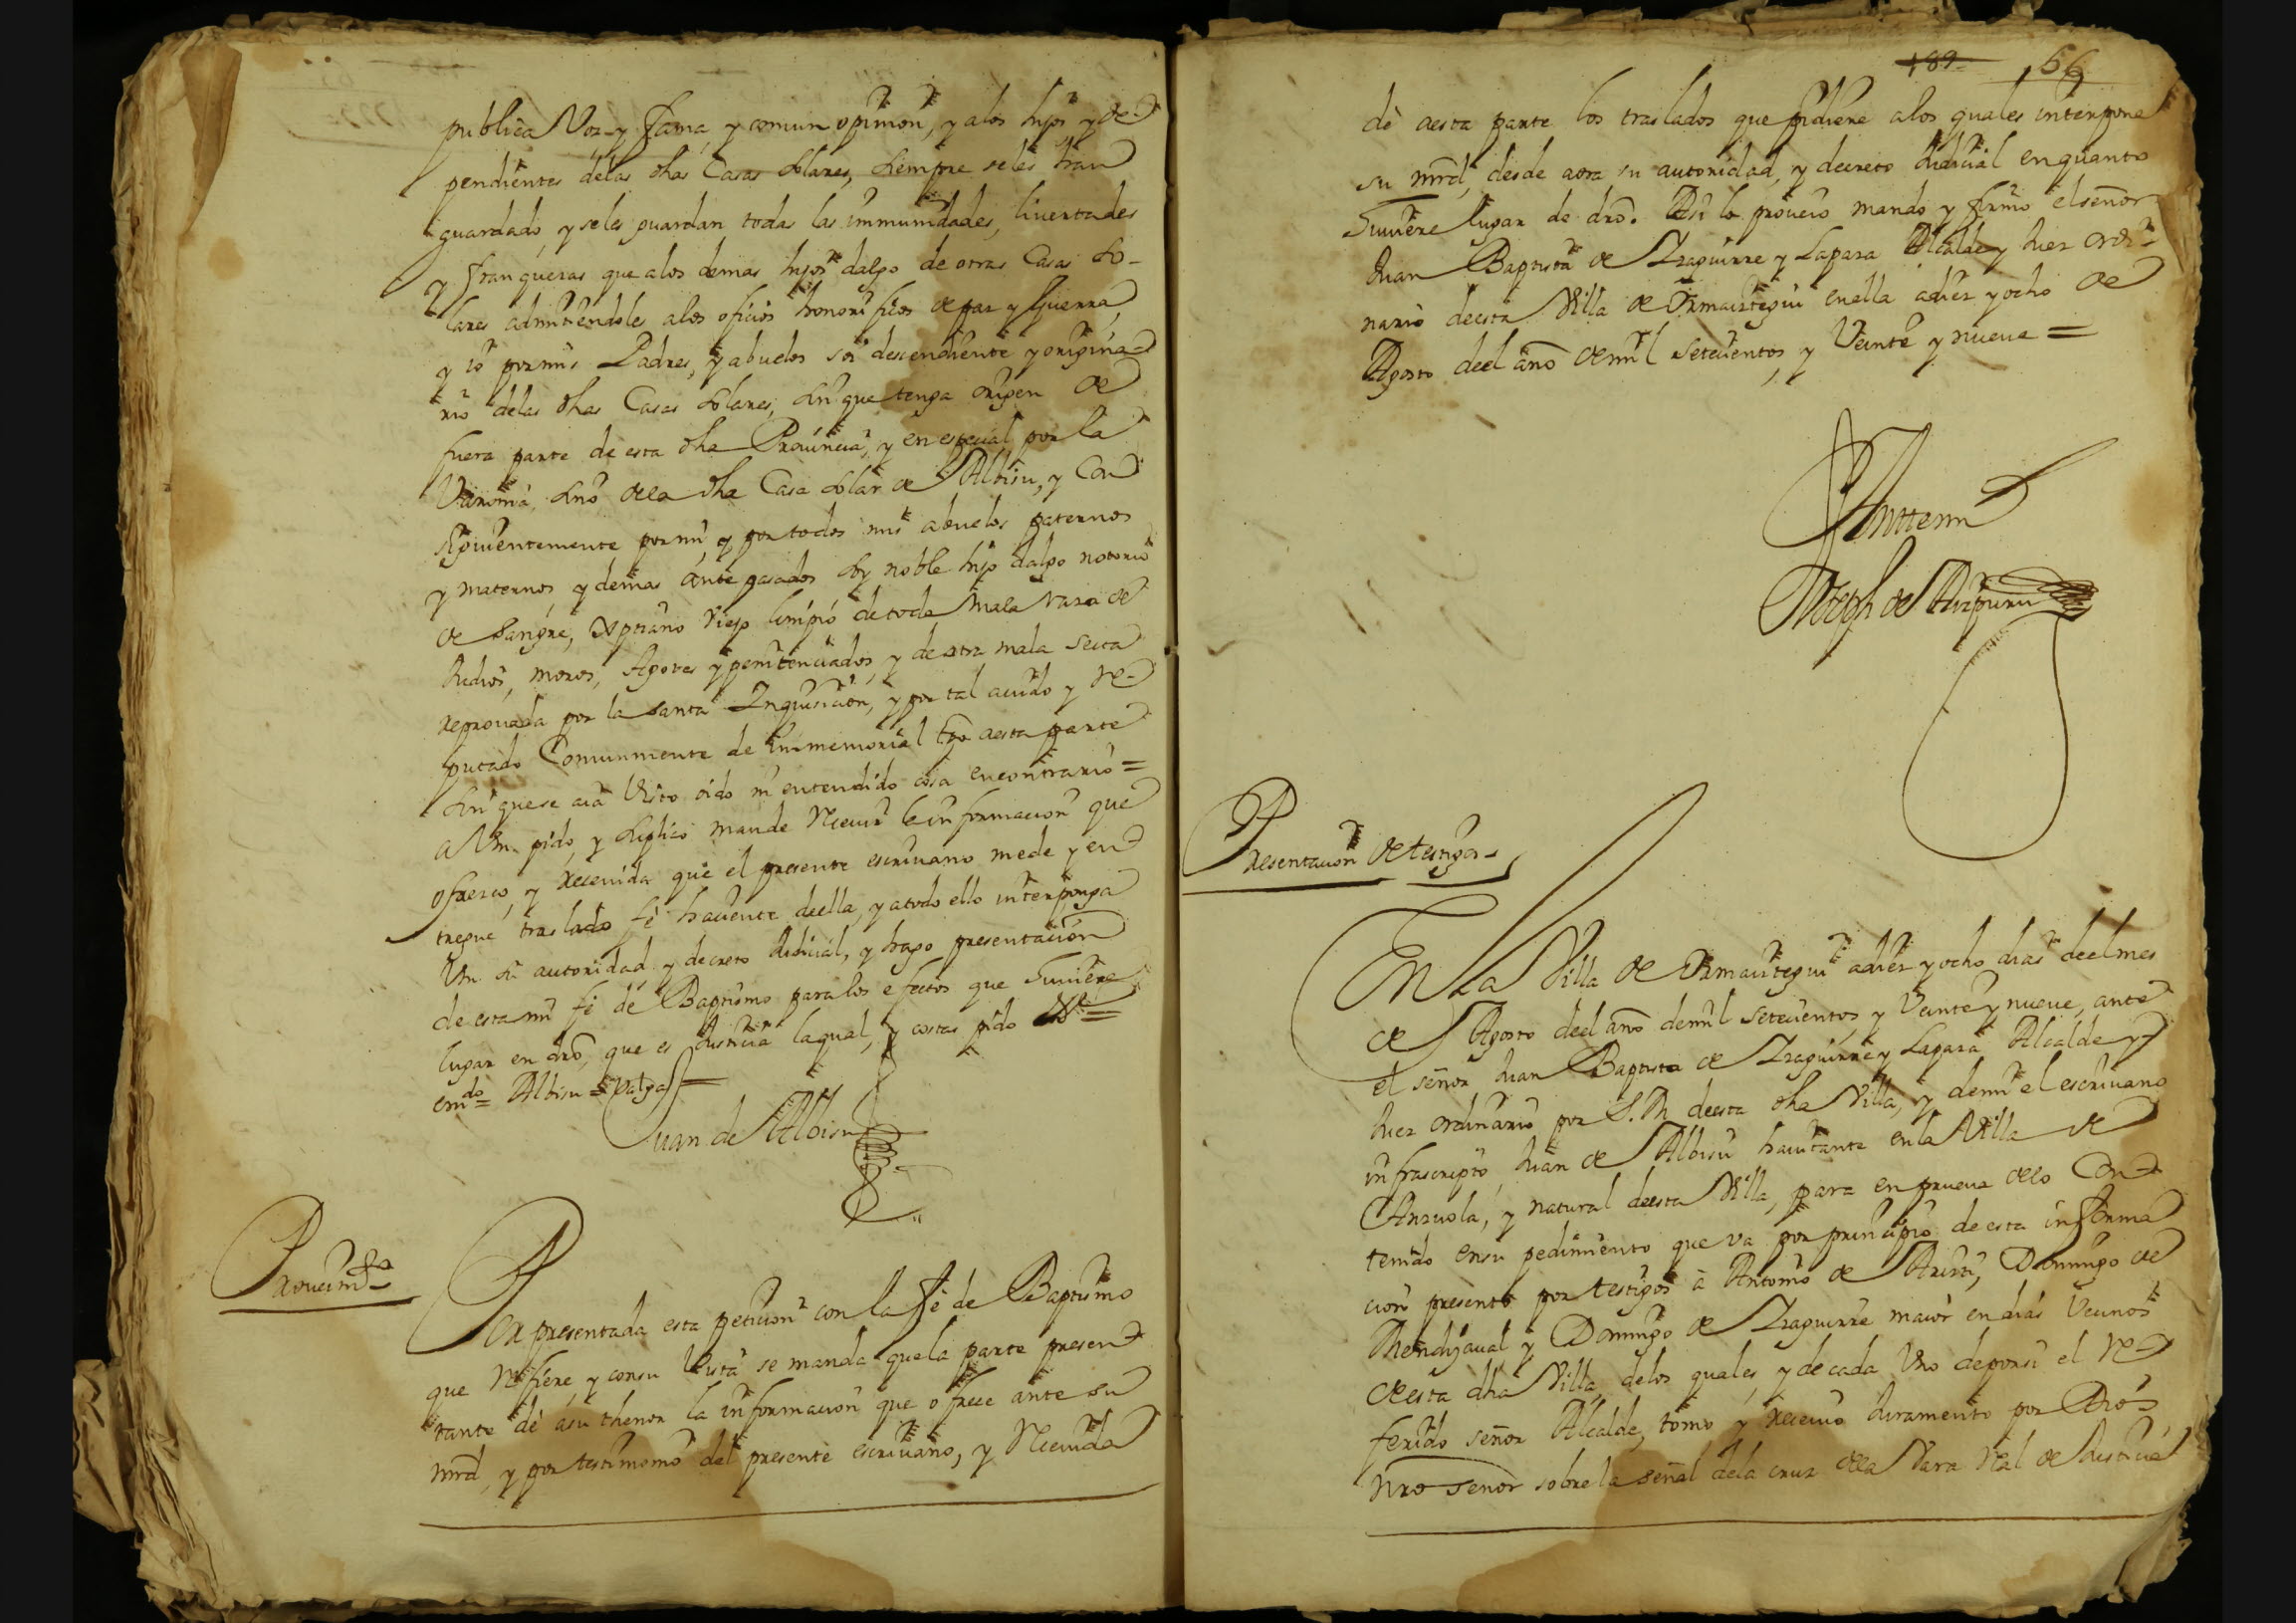 publica Voz y fama, y comun opinion, y alos hijos y de-
pendientes delas dhas Casas Solares, siempre seles han
guardado, y seles guardan todas las immunidades, livertades
y franquezas que alos demas hijos dalgo de otras Casas So-
lares admitiendoles alos oficios honorificos de paz y Guerra,
y io por mis Padres, y abuelos soi descendiente y origina-
rio delas dhas Casas Solares, sin que tenga origen de
fuera parte de esta dha Prouincia, y en especial por la
Varonia, sino dela dha Casa Solar de Albisu, y Con
siguientemente por mi, y por todos mis abuelos paternos
y maternos y demas ante pasados soy noble hijo dalgo notorio
de Sangre, Xptiano Viejo limpio de toda mala raza de
Judios, moros, Agotes y penitenciados, y de otra mala secta
reprouada por la santa Inquisicion, y por tal auido y re-
putado Comunmente de Immemorial tpo aesta parte
sin quese aia Visto oido ni entendido cosa encontrario =
A Vm pido, y suplico mande Reciuir la informacion que
ofrezco, y Receuida que el presente escriuano me de y en
tregue traslado fè haciente deella, y atodo ello interponga
Vm su autoridad y decreto Judicial, y hago presentacion
de esta mi fe de Baptismo para los efectos que Tuuiere
lugar en dro, que es Justicia laqual, y costas pido &c =
emdo = Albisu = Valga =
Juan de Albisu
Proueimto
Por presentada esta peticion con la fè de Baptismo
que Refiere, y consu Vista se manda quela parte presen
tante dè asu thenor la informacion que ofrece ante su
mrd, y por testimonio del presente escriuano, y Receuida
189 66
dè aesta parte los traslados que pidiere alos quales interpone
su mrd, desde aora su autoridad, y decreto Judicial enquanto
Tuuiere lugar de dro. Asi lo proueio mando y firmò el señor
Juan Baptista de Izaguirre y Lapaza Alcalde y Juez ordi-
nario deesta Villa de Ormaiztegui enella adiez y ocho de
Agosto deel año demil setecientos, y Veinte y nueue =
Antemi
Joseph de Aizpuru
Presentacion de testigos
En La Villa de Ormaiztegui adiez y ocho dias deelmes
de Agosto deel año demil setecientos, y Veinte y nueue, ante
el señor Juan Baptista de Izaguirre y Lapaza Alcalde y
Juez ordinario por S. M. deesta dha Villa, y demi el escriuano
infrascripto, Juan de Albisu hauitante enla Villa de
Anzuola, y natural deesta Villa, para enprueua delo Con
tenido ensu pedimiento que va por principio de esta informa
cion presentò por testigos à Antonio de Aristi, Domingo de
Mendizaual y Domingo de Izaguirre maior endias Vecinos
deesta dha Villa, delos quales, y de cada Vno deporsi el Re
ferido señor Alcalde, tomo y receuio Juramento por Dios
nro señor sobre la señal dela cruz dela Vara Real de Justicia